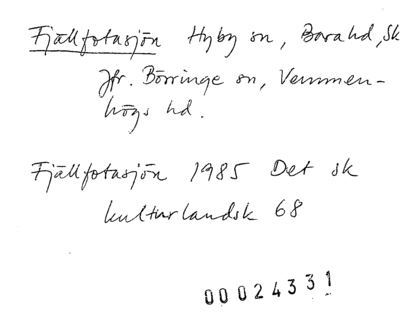 Fjällfotasjön Hyby sn, Bara hd, Sk
Jfr. Börringe sn, Vemmen-
högs hd.
Fjällfotasjön 1985 Det sk
kulturlandsk 68
00024331